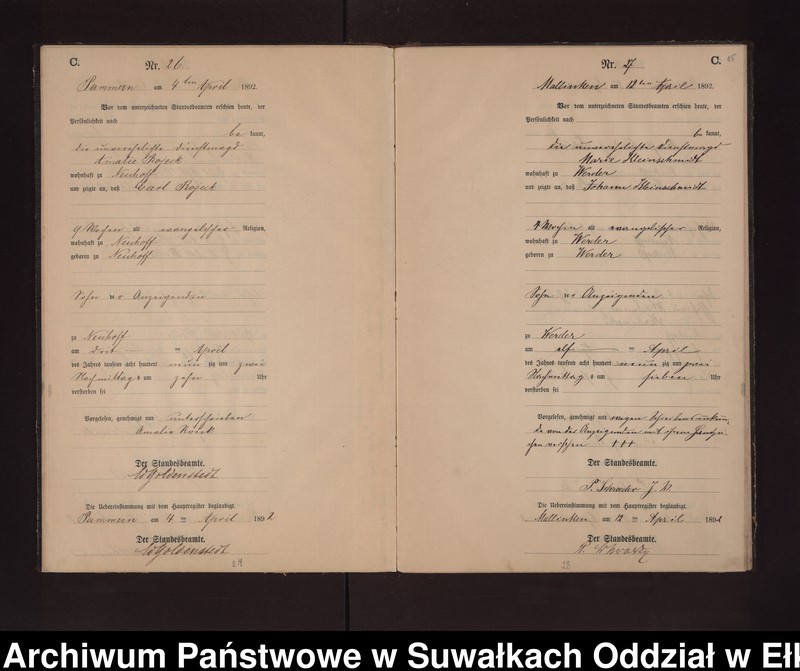 C.
Nr. 26
am 4 ten April 1892.
Vor dem unterzeichneten Standesbeamten erschien heute, der
Persönlichkeit nach
be kannt,
die unverehelichte Dienstmagd
Amalie Rojeck
wohnhaft zu Neuhoff
und zeigte an, daß Carl Rojeck
9 Wochen alt evangelischer Religion,
wohnhaft zu Neuhoff
geboren zu Neuhoff
Sohn der Anzeigenden
zu Neuhoff
am drit ten April
des Jahres tausend acht hundert neun zig und zwei
Nachmittags um zehn Uhr
verstorben sei
Vorgelesen, genehmigt und unterschrieben
Amalie
Der Standesbeamte.
Goldenstedt
Die Uebereinstimmung mit dem Hauptregister beglaubigt.
am 4 ten April 1892
Der Standesbeamte.
Goldenstedt
C.
Nr. 27
Mallinken am 12 ten April 1892.
Vor dem unterzeichneten Standesbeamten erschien heute, der
Persönlichkeit nach
be kannt,
die unverehelichte Dienstmagd
Marie Kleinschmidt
wohnhaft zu Werder
und zeigte an, daß Johann Kleinschmidt
4 Wochen alt evangelischer Religion,
wohnhaft zu Werder
geboren zu Werder
Sohn der Anzeigenden
zu Werder
am elf ten April
des Jahres tausend acht hundert neun zig und zwei
Nachmittag s um sieben Uhr
verstorben sei
Vorgelesen, genehmigt und wegen Schreibensunkun-
de von der Anzeigenden mit ihrem Handzei-
chen versehen +++
Der Standesbeamte.
Die Uebereinstimmung mit dem Hauptregister beglaubigt.
Mallinken am 12 ten April 1892
Der Standesbeamte.
28
Archiwum Państwowe w Suwałkach Oddział w Eł